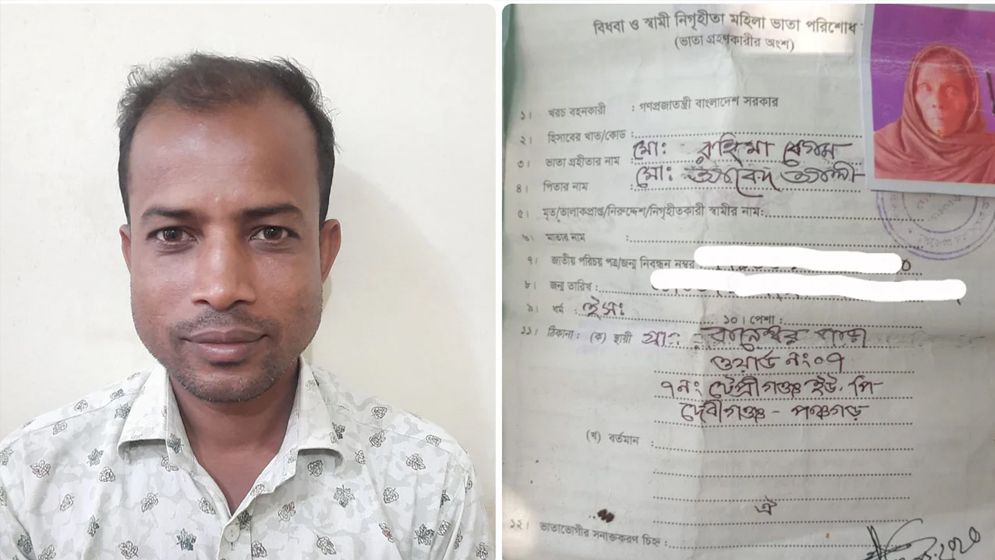 বিধবা ও স্বামী নিগৃহীতা মহিলা ভাতা পরিশোধ
(ভাতা গ্রহণকারীর অংশ)
১। খরচ বহনকারী : গণপ্রজাতন্ত্রী বাংলাদেশ সরকার
২। হিসাবের খাত/কোড :
৩। ভাতা গ্রহীতার নাম : মোঃ রহিমা বেগম
৪। পিতার নাম : মোঃ আবেদ আলী
৫। মৃত/তালাকপ্রাপ্ত/নিরুদ্দেশ/নিগৃহীতকারী স্বামীর নাম:
৬। মাতার নাম :
৭। জাতীয় পরিচয় পত্র/জন্ম নিবন্ধন নম্বর
৮। জন্ম তারিখ :
৯। ধর্ম : ইসঃ ১০। পেশা :
১১। ঠিকানা: (ক) স্থায়ী গ্রাঃ
ওয়ার্ড নং০৭
৭নং টেপ্রীগঞ্জ ইউ. পি-
দেবীগঞ্জ - পঞ্চগড়
(খ) বর্তমান :
ঐ
১২। ভাতাভোগীর সনাক্তকরণ চিহ্ন :